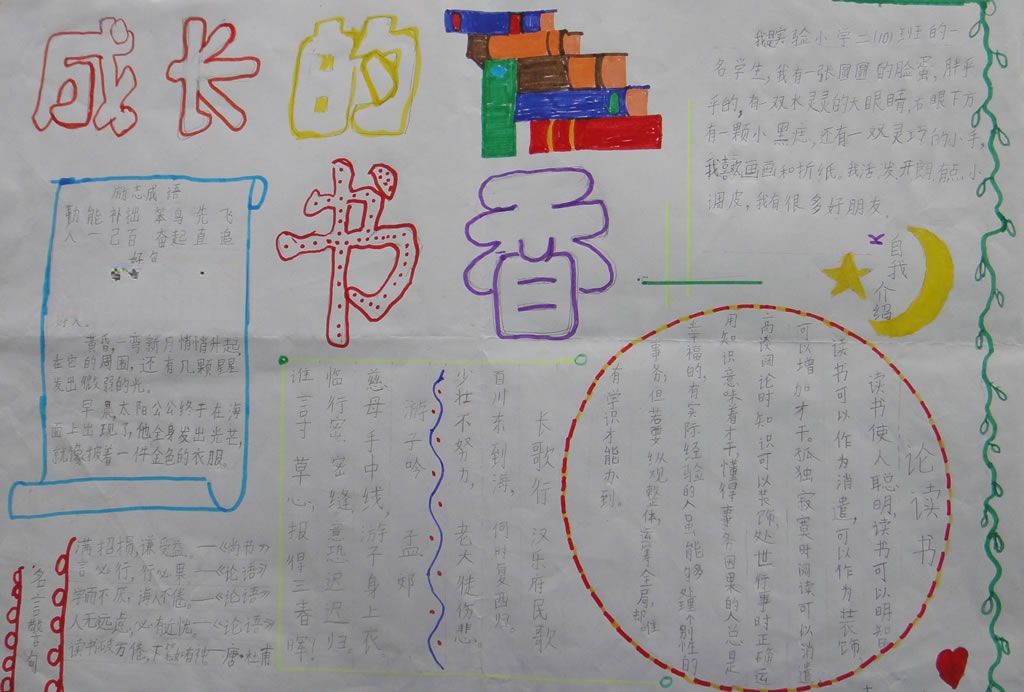 成长的
书香
我是实验小学二(10)班的一
名学生,我有一张圆圆的脸蛋,胖乎
乎的,有一双水灵灵的大眼睛,右眼下方
有一颗小黑痣,还有一双灵巧的小手,
我喜欢画画和折纸。我活发开朗,有点小
调皮,我有很多好朋友。
自我介绍
励志成语
勤能补拙 笨鸟先飞
人一己百 奋起直追
好句
黄昏,一弯新月悄悄升起,
在它的周围,还有几颗星星
发出微弱的光。
早晨,太阳公公终于在海
面上出现了,他全身发出光芒,
就像披着一件金色的衣服。
名言警句
满招损,谦受益。——《尚书》
言必行,行必果。——《论语》
学而不厌,诲人不倦。——《论语》
人无远虑,必有近忧。——《论语》
读书破万卷,下笔如有神——唐·杜甫
长歌行 汉乐府民歌
百川东到海,何时复西归。
少壮不努力,老大徒伤悲。
游子吟 孟郊
慈母手中线,游子身上衣。
临行密密缝,意恐迟迟归。
谁言寸草心,报得三春晖!
论读书
读书使人聪明,读书可以明智,
读书可以作为消遣,可以作为装饰,
可以增加才干。孤独寂寞时阅读可以消遣,
高谈阔论时知识可以装饰,处世件事时正确运
用知识意味着才干,懂得事务因果的人总是
幸福的,有实际经验的人虽能够处理个别性的
事务,但若要纵观整体,运筹全局,却唯
有学识才能办到。